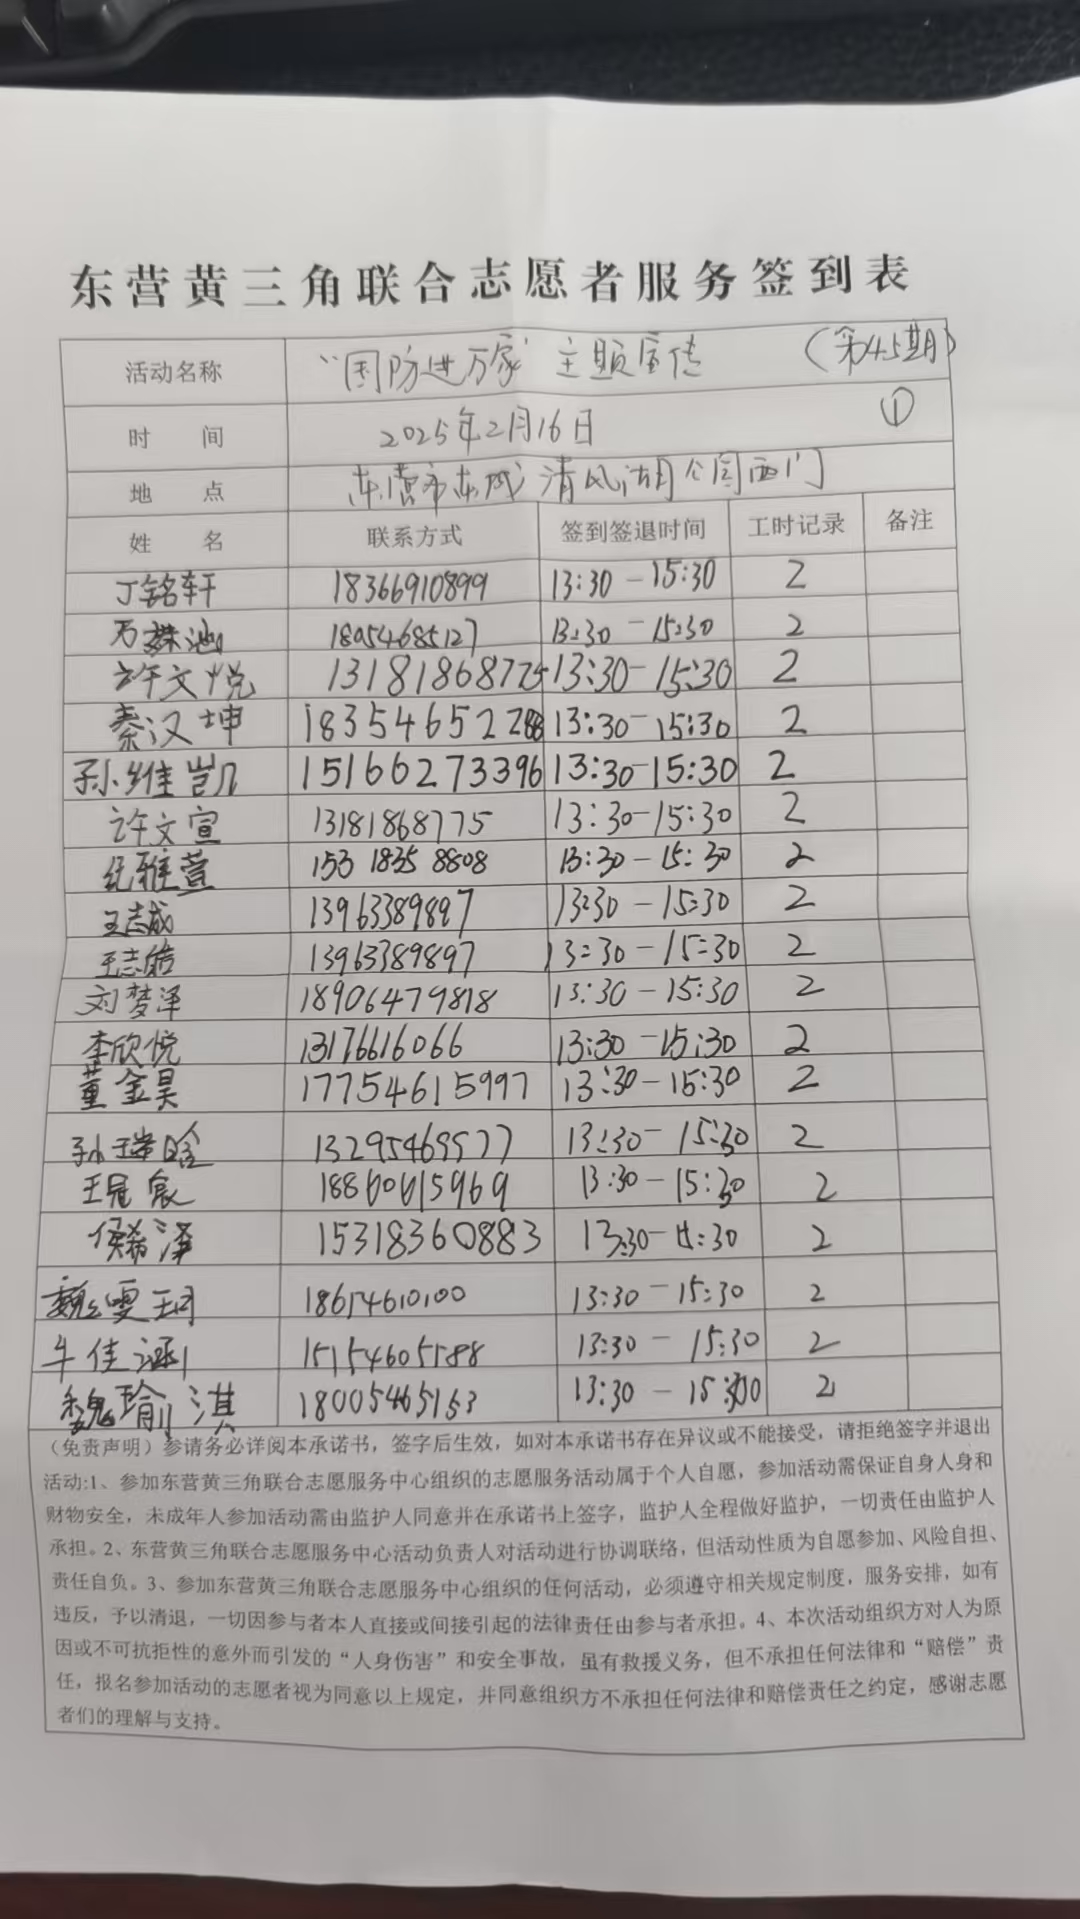 东营黄三角联合志愿者服务签到表
活动名称 “国防进万家”主题宣传 （第45期）
时 间 2025年2月16日 ①
地 点 东营市东城清风湖公园西门
姓 名 联系方式 签到签退时间 工时记录 备注
丁铭轩 18366910899 13:30-15:30 2
万姝池 18054685127 13:30-15:30 2
许文悦 13181868775 13:30-15:30 2
秦汉坤 18354652288 13:30-15:30 2
孙维凯 15166273396 13:30-15:30 2
许文宣 13181868775 13:30-15:30 2
纪雅萱 153 1835 8808 13:30-15:30 2
王志成 13963389897 13:30-15:30 2
王志皓 13963389897 13:30-15:30 2
刘梦泽 18906479818 13:30-15:30 2
李欣悦 13176616066 13:30-15:30 2
董金昊 17754615997 13:30-15:30 2
孙瑞晗 13295469577 13:30-15:30 2
王冠宸 18860615969 13:30-15:30 2
侯希泽 15318360883 13:30-15:30 2
魏雯珂 18614610100 13:30-15:30 2
牛佳涵 15154605188 13:30-15:30 2
魏瑜淇 18005465153 13:30-15:30 2
（免责声明）参请务必详阅本承诺书，签字后生效，如对本承诺书存在异议或不能接受，请拒绝签字并退出
活动:1、参加东营黄三角联合志愿服务中心组织的志愿服务活动属于个人自愿，参加活动需保证自身人身和
财物安全，未成年人参加活动需由监护人同意并在承诺书上签字，监护人全程做好监护，一切责任由监护人
承担。2、东营黄三角联合志愿服务中心活动负责人对活动进行协调联络，但活动性质为自愿参加、风险自担、
责任自负。3、参加东营黄三角联合志愿服务中心组织的任何活动，必须遵守相关规定制度，服务安排，如有
违反，予以清退，一切因参与者本人直接或间接引起的法律责任由参与者承担。4、本次活动组织方对人为原
因或不可抗拒性的意外而引发的“人身伤害”和安全事故，虽有救援义务，但不承担任何法律和“赔偿”责
任，报名参加活动的志愿者视为同意以上规定，并同意组织方不承担任何法律和赔偿责任之约定，感谢志愿
者们的理解与支持。